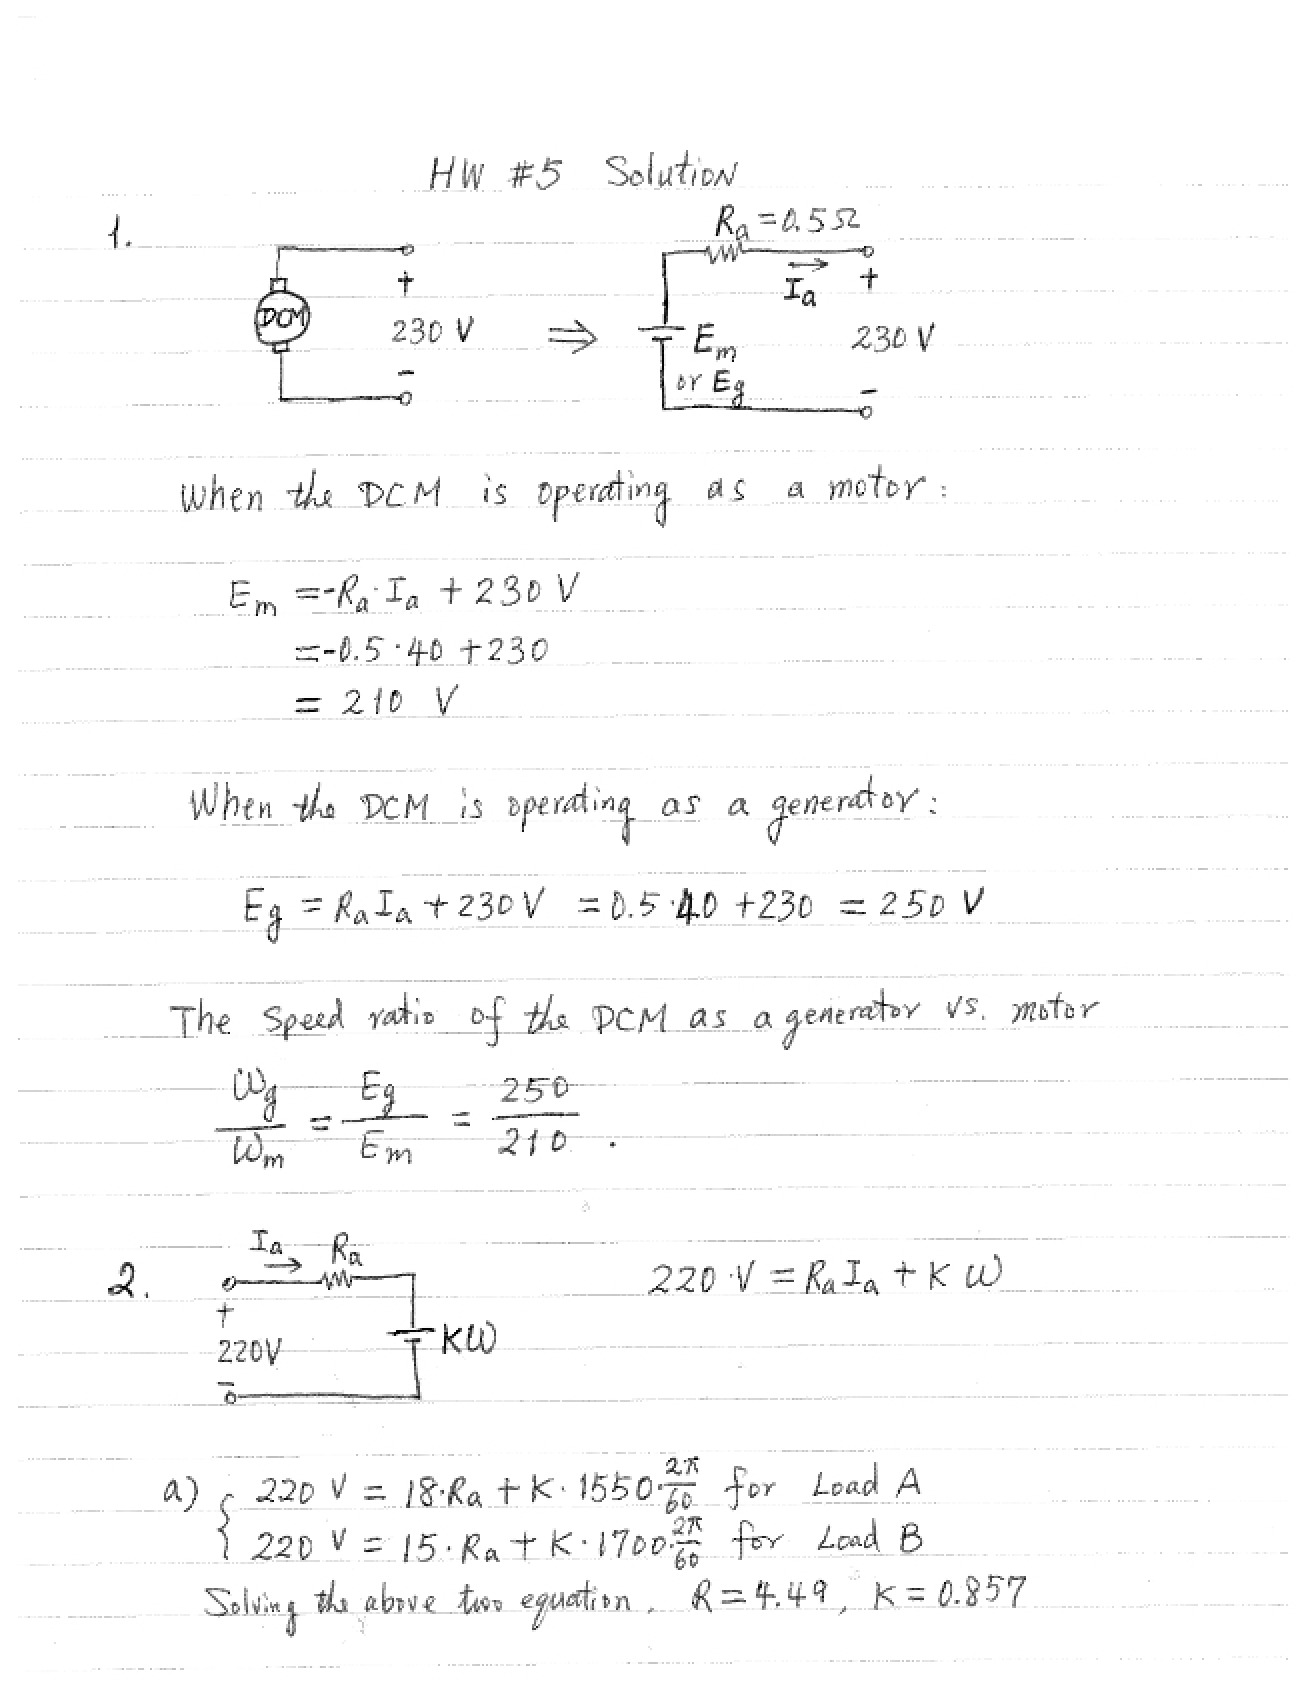 HW #5 Solution
1.
DCM
+
230 V
-
⇒
Ra = 0.5 Ω
Ia
+
Em
or Eg
230 V
-
When the DCM is operating as a motor:
Em = -Ra·Ia + 230 V
= -0.5·40 + 230
= 210 V
When the DCM is operating as a generator:
Eg = RaIa + 230 V = 0.5·40 + 230 = 250 V
The speed ratio of the DCM as a generator vs. motor
ωg/ωm = Eg/Em = 250/210 .
2.
Ia → Ra
+
220V
-
Kω
220·V = RaIa + Kω
a) { 220 V = 18·Ra + K·1550·2π/60 for Load A
220 V = 15·Ra + K·1700·2π/60 for Load B
Solving the above two equation, R = 4.49, K = 0.857